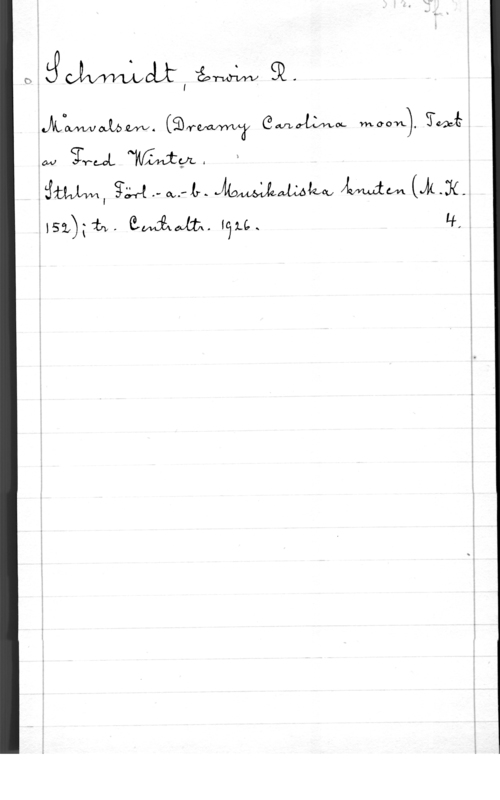 Schmidt, Erwin R.
Månvalsen. (Dreamy Carolina moon). Text
av Fred Winter.
Sthlm, Förl.-a.-b. Musikaliska knuten (M.K.
152); tr. Centraltr. 1926. 4.